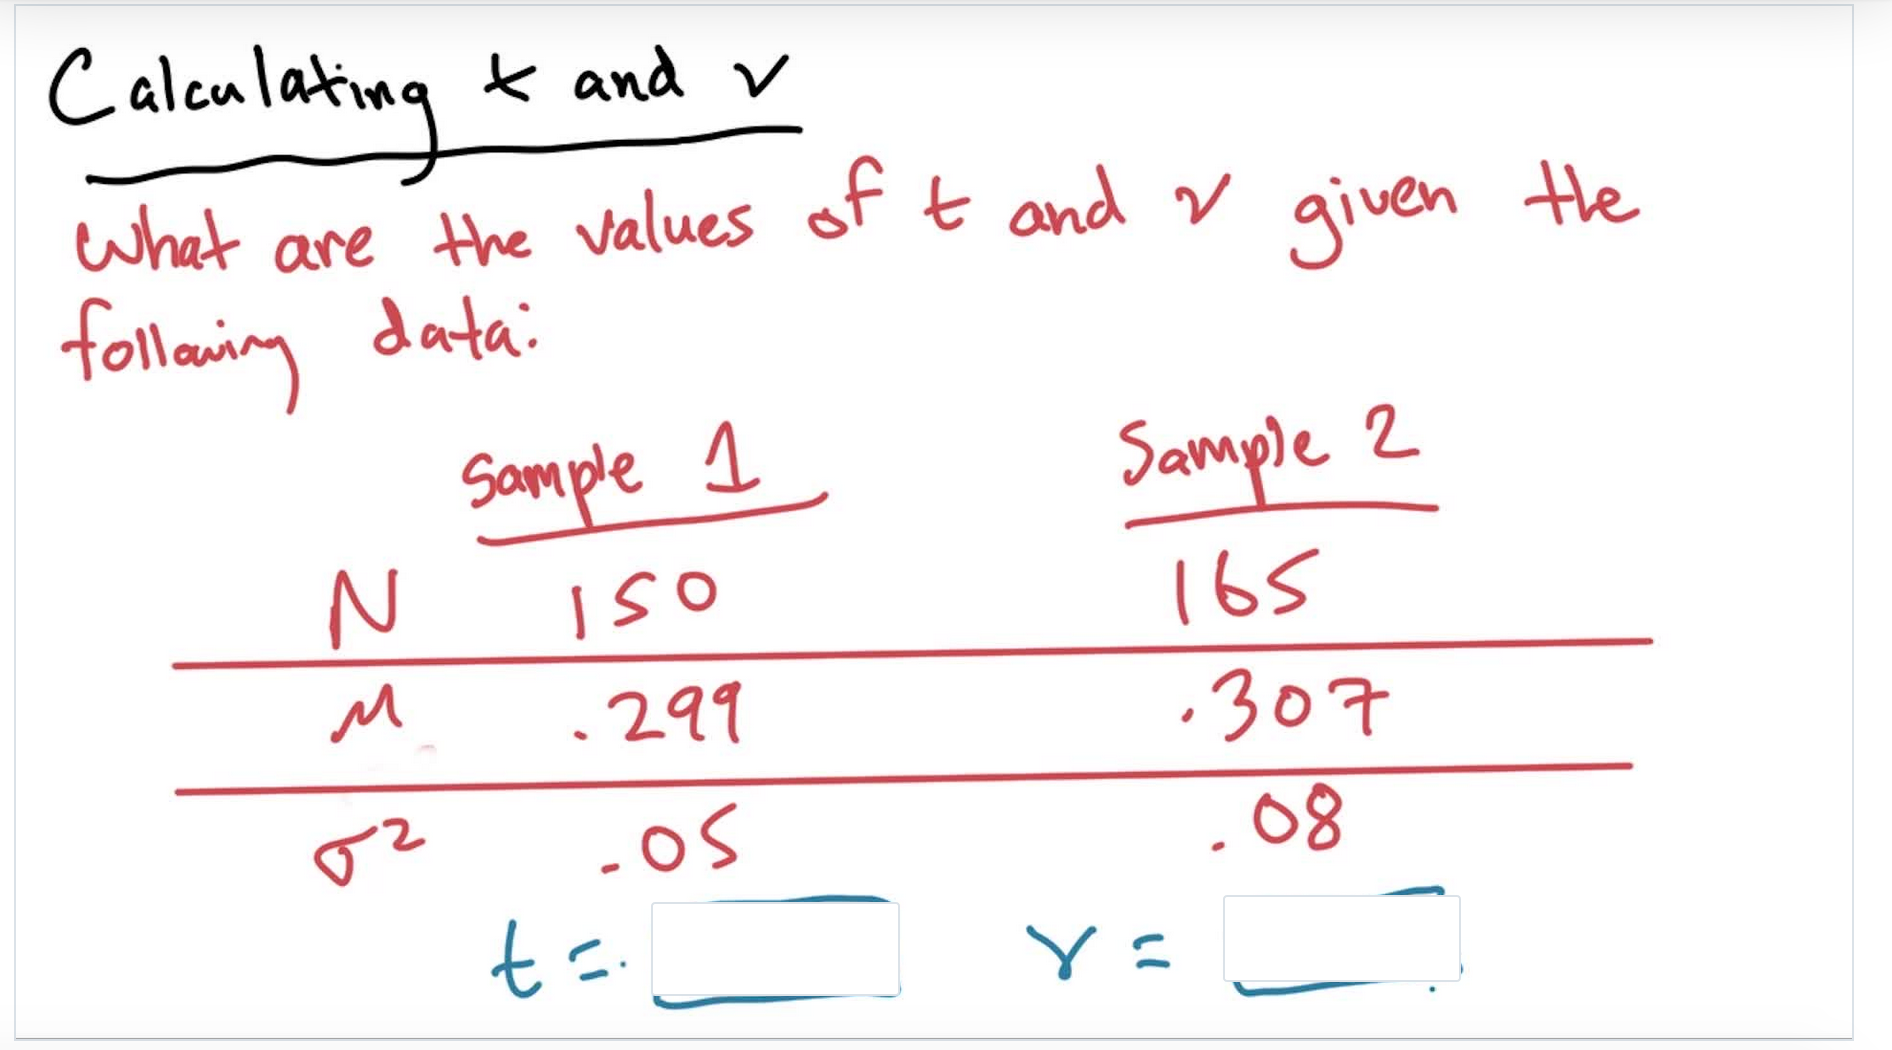 Calculating t and ν
What are the values of t and ν given the
following data:
Sample 1 Sample 2
N 150 165
μ .299 .307
σ² .05 .08
t = ν =